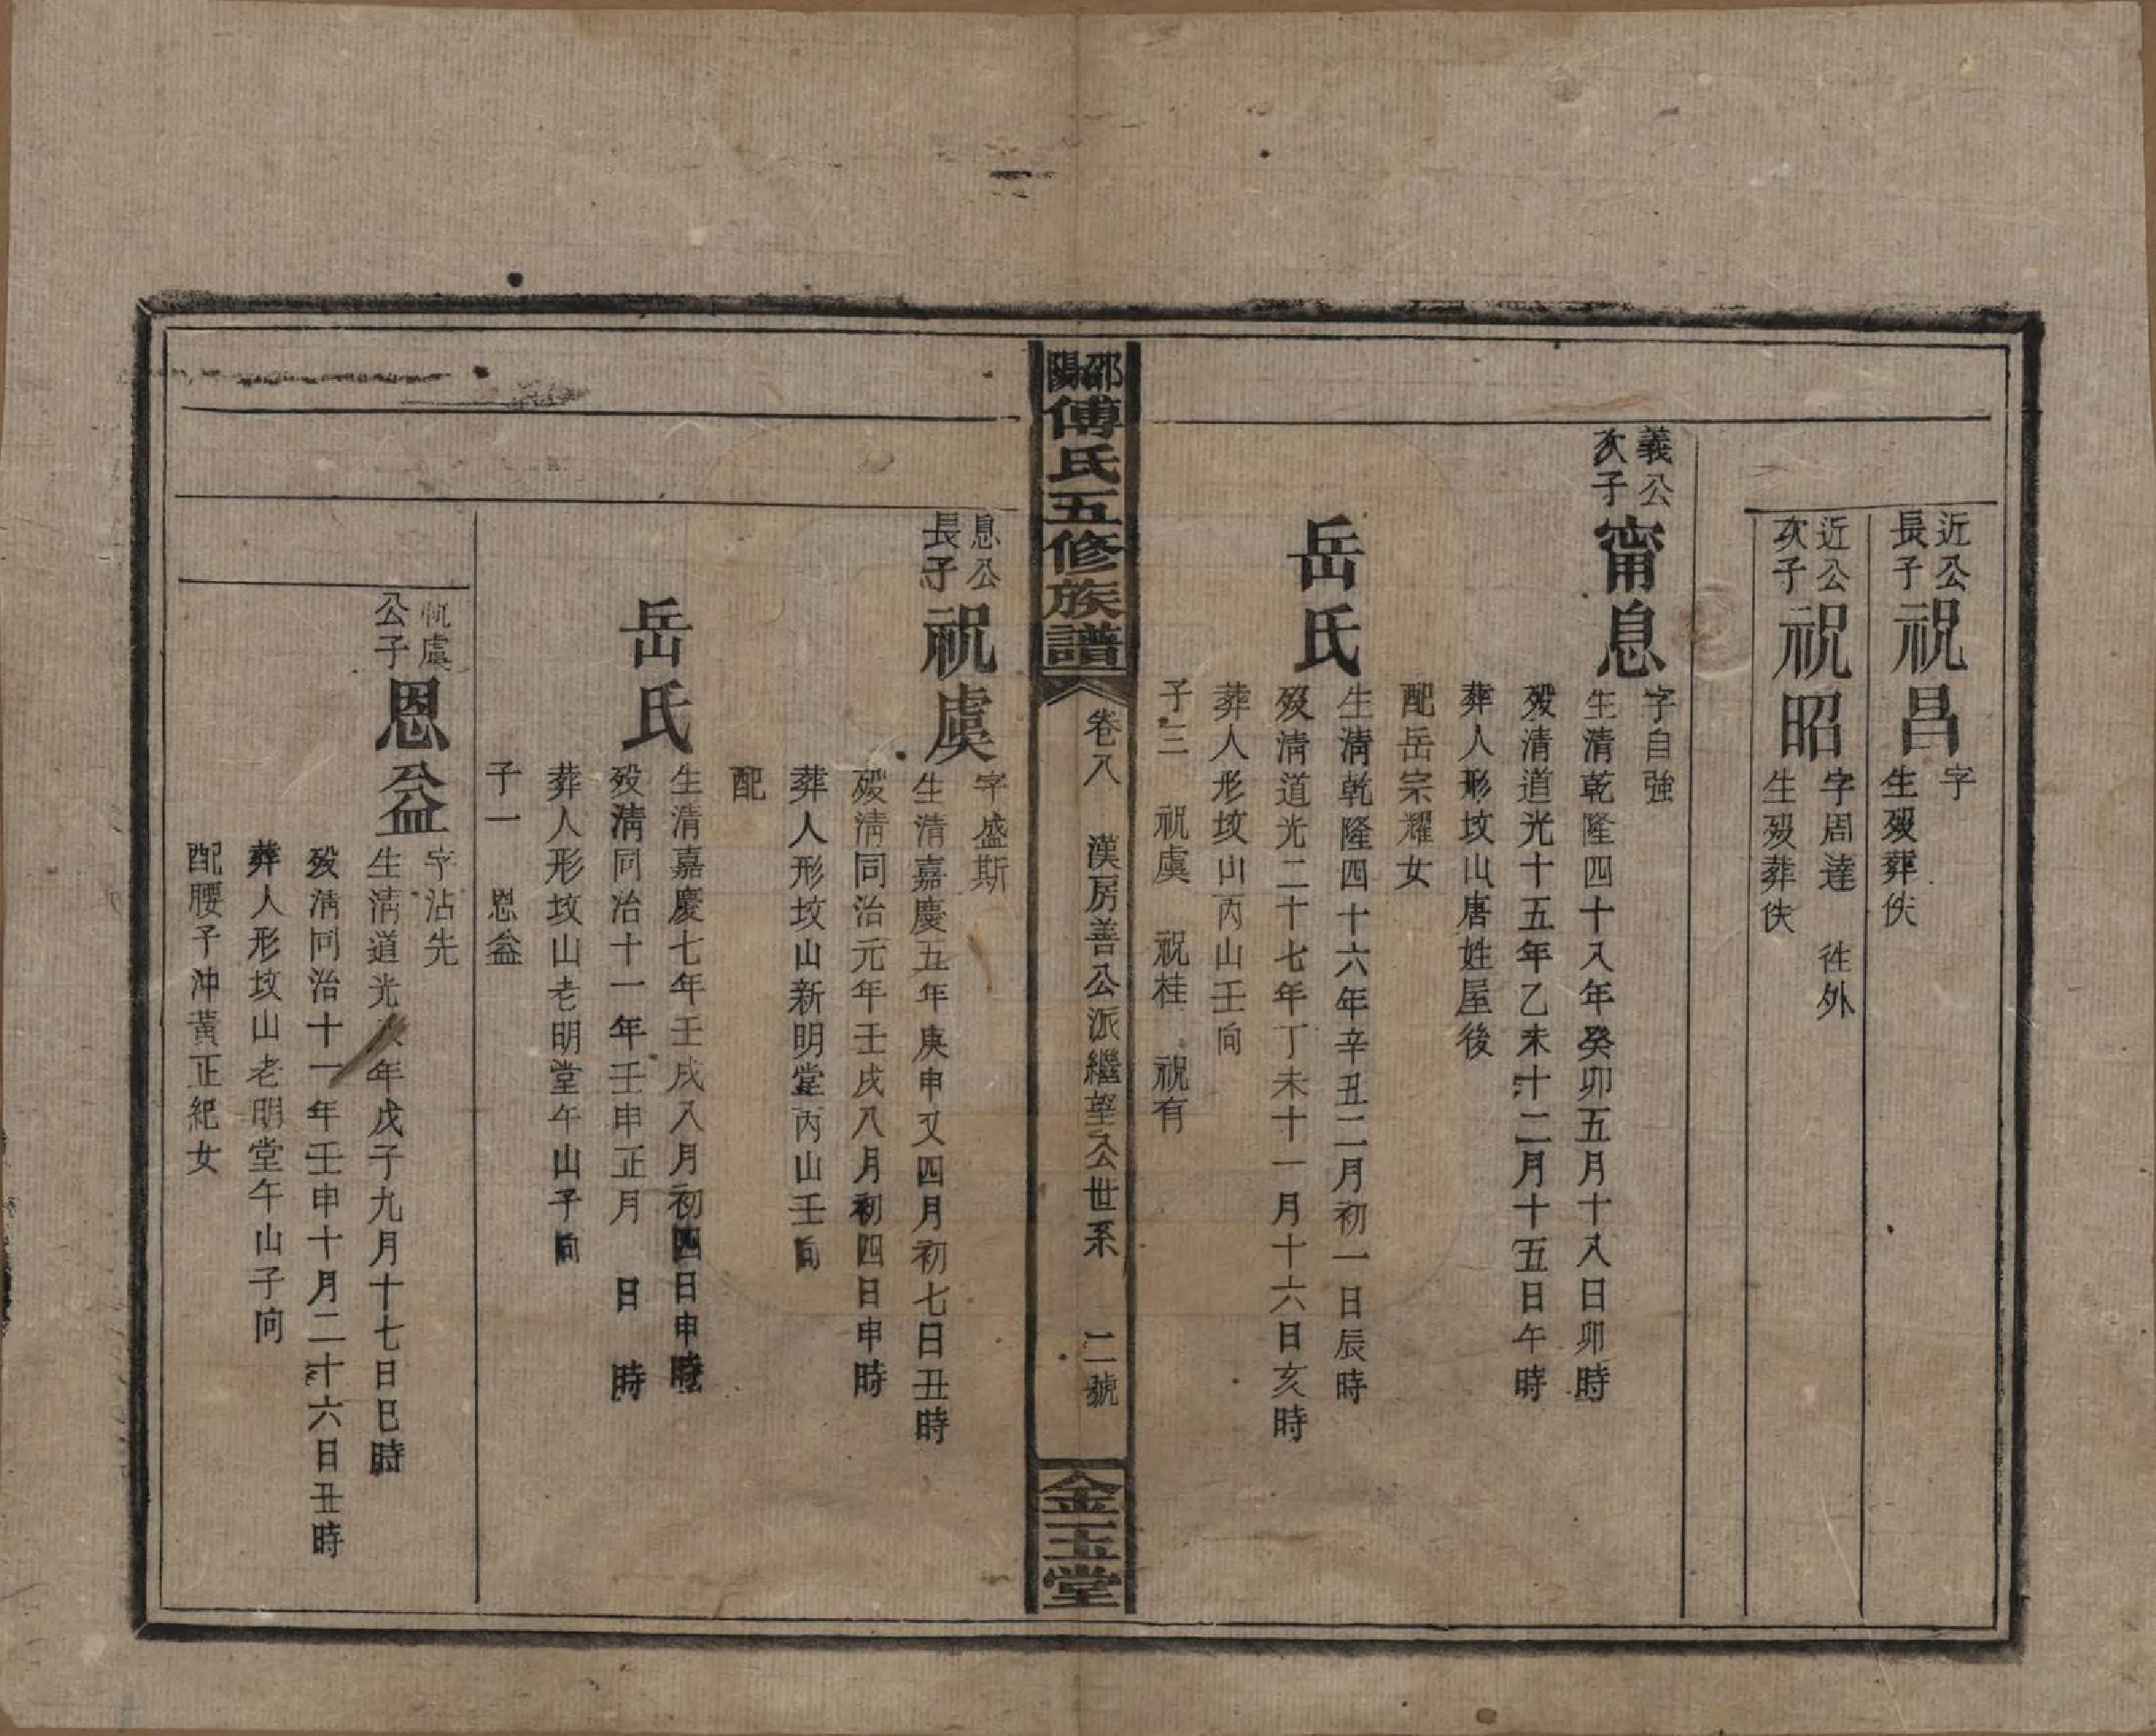 近公
長子
祝昌
字
生歿葬佚
近公
次子
祝昭
字周達　徃外
生歿葬佚
義公
次子
甯息
字自強
生清乾隆四十八年癸卯五月十八日卯時
歿清道光十五年乙未十二月十五日午時
葬人形坟山唐姓屋後
配岳宗耀女
岳氏
生清乾隆四十六年辛丑二月初一日辰時
歿清道光二十七年丁未十一月十六日亥時
葬人形坟山丙山壬向
子三　祝虞　祝桂　祝有
邵陽傅氏五修族譜
卷八　漢房善公派繼望公世系　二號
金玉堂
息公
長子
祝虞
字盛斯
生清嘉慶五年庚申又四月初七日丑時
歿清同治元年壬戌八月初四日申時
葬人形坟山新明堂丙山壬向
配
岳氏
生清嘉慶七年壬戌八月初四日申時
歿清同治十一年壬申正月　日　時
葬人形坟山老明堂午山子向
子一　恩益
祝虞
公子
恩益
字沾先
生清道光年戊子九月十七日巳時
歿清同治十一年壬申十月二十六日丑時
葬人形坟山老明堂午山子向
配腰子沖黃正紀女